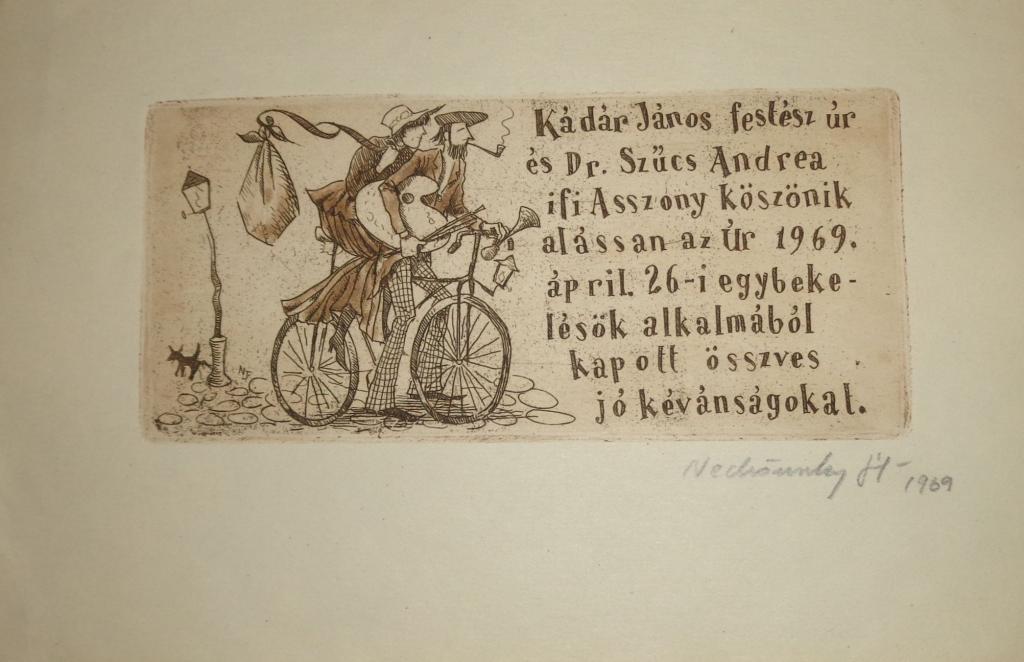 Kádár János festész úr
és Dr. Szűcs Andrea
ifi Asszony köszönik
alássan az Úr 1969.
ápril. 26-i egybeke-
lésök alkalmából
kapott összves
jó kévánságokat.
NF
1969